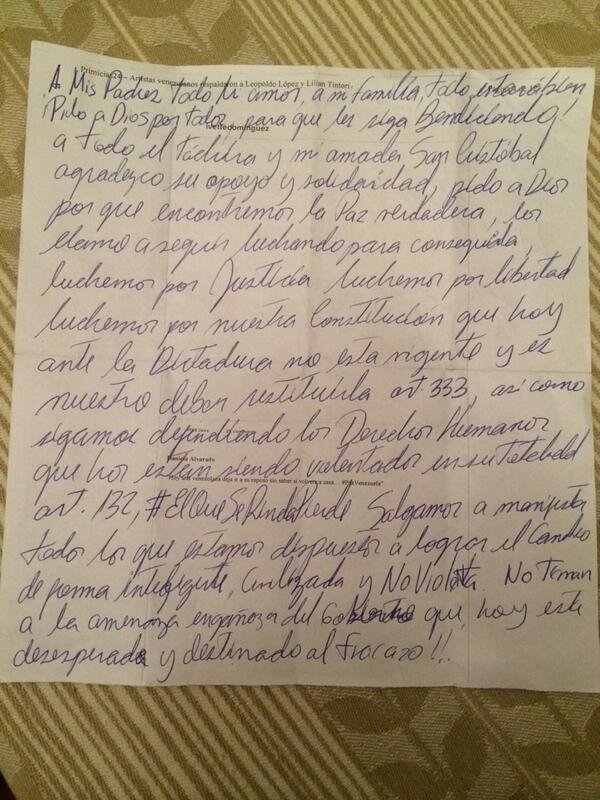 Primicias24 – Artistas venezolanos respaldaron a Leopoldo López y Lilian Tintori
A Mis Padres todo mi amor, a mi familia, todo estará bien
Pido a Dios por todos para que les siga Bendiciendo!
ivettedominguez
a todo el Táchira y mi amada San Cristóbal
agradezco su apoyo y solidaridad, pido a Dios
por que encontremos la Paz verdadera, los
llamo a seguir luchando para conseguirla,
luchemos por Justicia luchemos por libertad
luchemos por nuestra Constitución que hoy
ante la Dictadura no esta vigente y es
nuestro deber restituirla art. 333, así como
sigamos defendiendo los Derechos Humanos
Daniela Alvarado
que hoy estan siendo violentados en su totalidad
"Hoy una venezolana deja ir a su esposo sin saber si volverá a casa... #PrayVenezuela"
art. 132, #ElQueSeRindePierde Salgamos a manifestar
todos los que estamos dispuestos a lograr el Cambio
de forma inteligente, Civilizada y No Violenta. No Teman
a la amenaza engañoza del Gobierno que hoy esta
desesperado y destinado al fracazo!!.